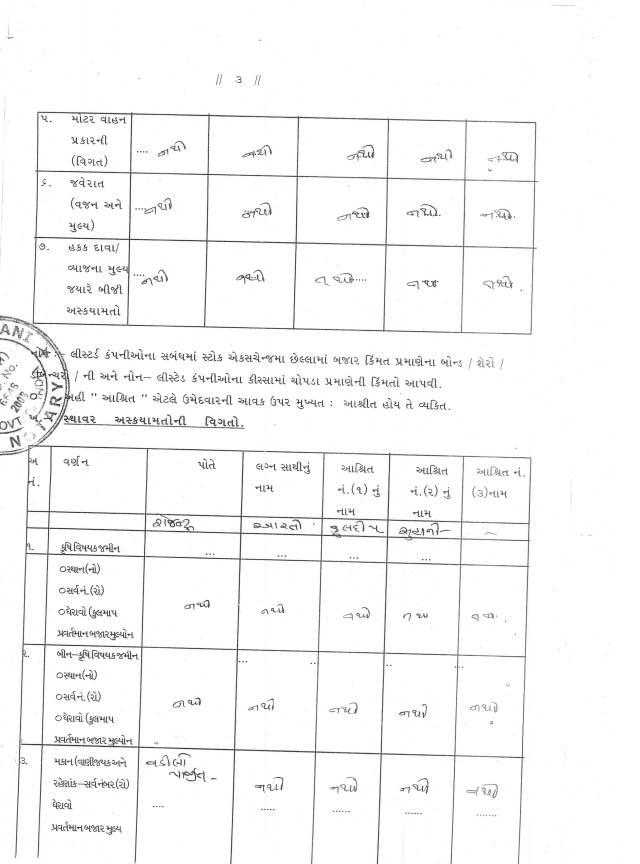 // ૩ //
૫. મોટર વાહન
પ્રકારની
(વિગત) .... નથી નથી નથી નથી નથી
૬. જવેરાત
(વજન અને ....નથી નથી નથી નથી. નથી.
મુલ્ય)
૭. હકક દાવા/
વ્યાજના મુલ્ય ....નથી નથી નથી.... નથી નથી.
જયારે બીજી
અસ્કયામતો
નોંધ :- લીસ્ટર્ડ કંપનીઓના સબંધમાં સ્ટોક એકસચેન્જમા છેલ્લામાં બજાર કિંમત પ્રમાણેના બોન્ડ / શેરો /
ડીબેન્ચરો / ની અને નોન– લીસ્ટેડ કંપનીઓના કીસ્સામાં ચોપડા પ્રમાણેની કિંમતો આપવી.
અહી " આશ્રિત " એટલે ઉમેદવારની આવક ઉપર મુખ્યત : આશ્રીત હોય તે વ્યકિત.
ખ. સ્થાવર અસ્કયામતોની વિગતો.
NOTARY
અ વર્ણન પોતે લગ્ન સાથીનું આશ્રિત આશ્રિત આશ્રિત નં.
નં. નામ નં.(૧) નું નં.(૨) નું (૩)નામ
નામ નામ
આરતી કુલદીપ –
૧. કૃષિવિષયકજમીન ... ... ... ...
૦સ્થાન(નો)
૦સર્વનં.(રો)
૦ઘેરાવો (કુલમાપ નથી નથી નથી નથી નથી
પ્રવર્તમાનબજારમુલ્યોન
૨. બીન–કૃષિવિષયકજમીન ... .. .. ...
૦સ્થાન(નો)
૦સર્વનં.(રો) નથી નથી નથી નથી નથી
૦ઘેરાવો (કુલમાપ
પ્રવર્તમાનબજારમુલ્યોન
૩. મકાન (વાણીજયકઅને વડીલો
રહેણાંક–સર્વનંબર(રો) પાર્જીત – નથી નથી નથી નથી
ઘેરાવો .... ..... ...... ..... .......
પ્રવર્તમાનબજારમુલ્ય